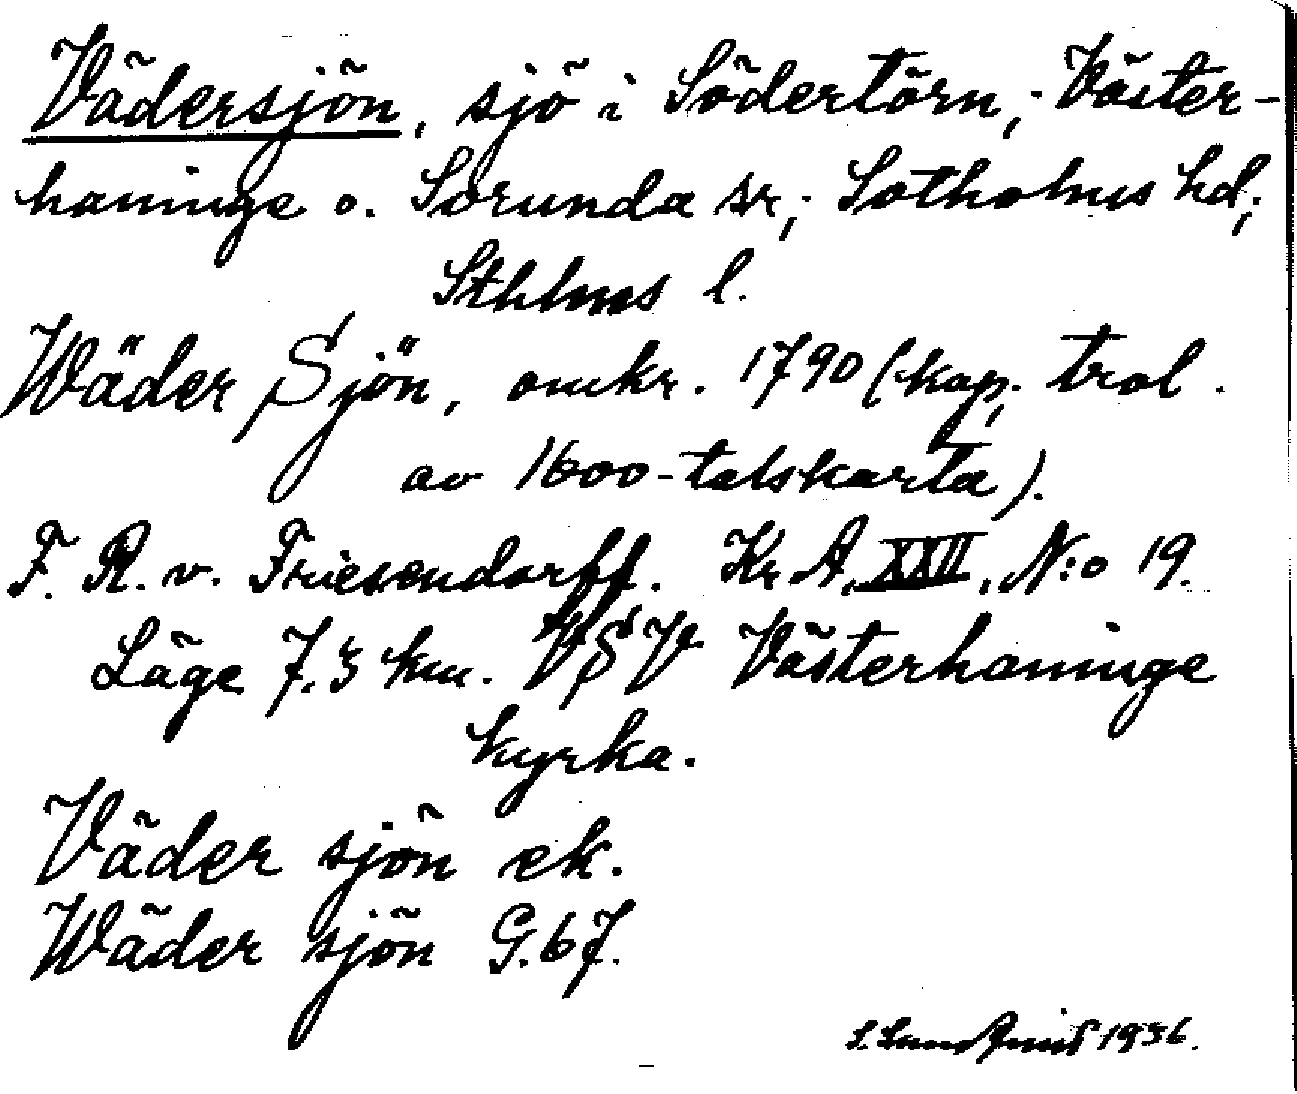 Vädersjön, sjö i Södertörn, Väster-
haninge o. Sorunda sr, Sotholms hd,
Sthlms l.
Wäder Sjön, omkr. 1790 (kop. trol.
av 1600-talskarta).
F. R. v. Friesendorff. Kr. A. XXII, N:o 19.
Läge 7.5 km. VSV Västerhaninge
kyrka.
Väder sjön ek.
Wäder sjön G. 67.
S. Sundqvist 1936.